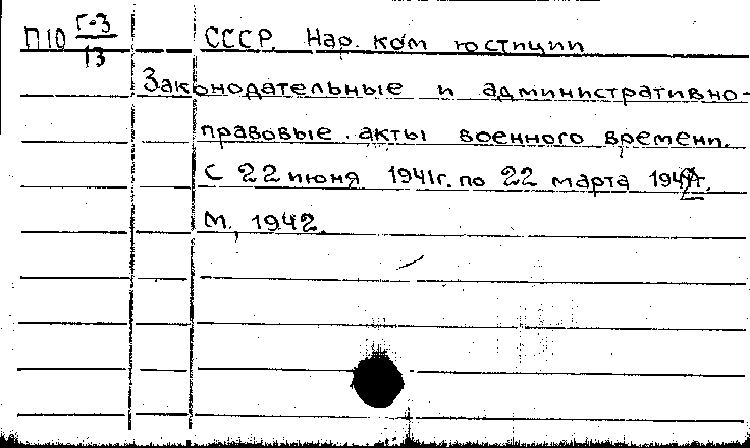 П10 Г-3/13 СССР. Нар. ком юстиции
Законодательные и административно-
правовые акты военного времени.
С 22 июня 1941г. по 22 марта 1942г.
М., 1942.